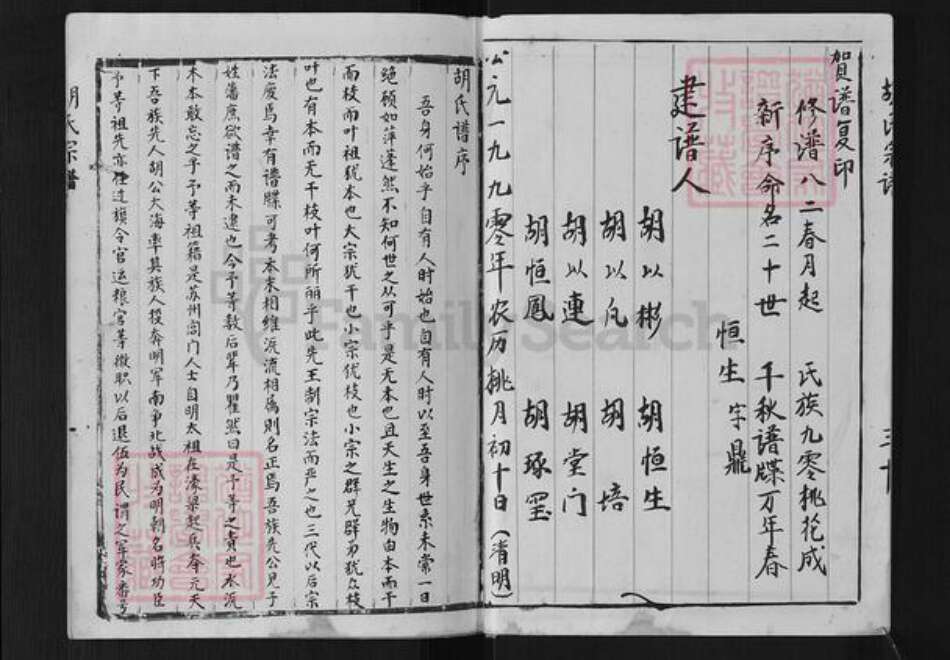 賀譜复印
修潽八二春月起 民族九零桃花成
新序命名二十世 千秋譜牒万年春
恒生 宇鼎
建譜人
胡以彬 胡恒生
胡以凡 胡培
胡以連 胡堂门
胡恒鳳 胡琢
公元一九九零年农历桃月初十日（清明）
胡氏譜序
吾身何始乎自有人时始也自有人时以至吾身世系未嘗一日
绝顾如萍蓬然不知何世之从可乎是无本也且天生之生物由本而干
而枝而叶祖犹本也大宗犹干也小宗犹枝也小宗之群兄群弟犹众枝
叶也有本而无干枝叶何所丽乎此先王制宗法而严之也三代以后宗
法废焉幸有譜牒可考本末相维派流相属則名正焉吾族先公見于
姓蕃庶欲谱之而未逮也今予等数后輩乃瞿然曰是予等之責也水沅
木本敢忘之乎予等祖籍是苏州阊门人士自明太祖在濠梁起兵奪元天
下吾族先人胡公大海率其族人投奔明军南争北战成为明朝名将功臣
予等祖先亦任过旗令官运粮官等微职以后退伍为民謂之军家番号
胡氏宗譜
Family Search